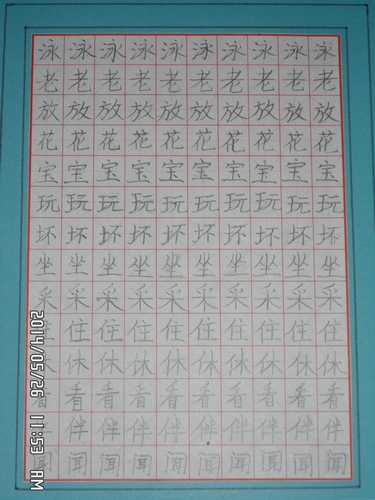 泳泳泳泳泳泳泳泳泳泳
老老老老老老老老老老
放放放放放放放放放放
花花花花花花花花花花
宝宝宝宝宝宝宝宝宝宝
玩玩玩玩玩玩玩玩玩玩
坏坏坏坏坏坏坏坏坏坏
坐坐坐坐坐坐坐坐坐坐
采采采采采采采采采采
住住住住住住住住住住
休休休休休休休休休休
看看看看看看看看看看
伴伴伴伴伴伴伴伴伴伴
闻闻闻闻闻闻闻闻闻闻
2014/05/26 11:53 AM